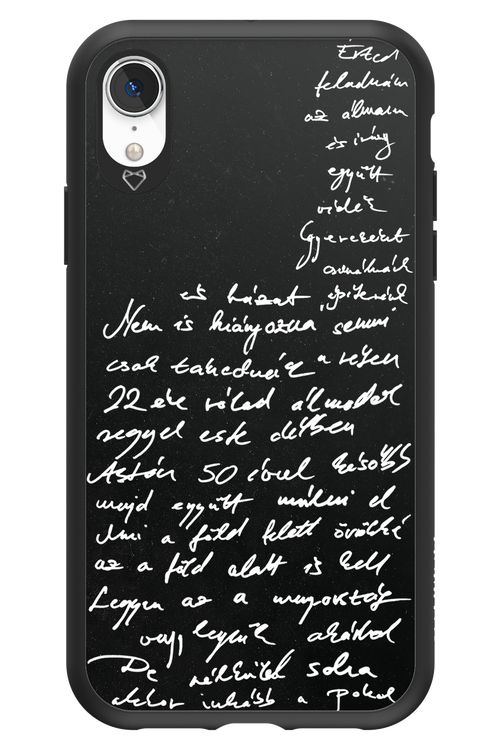 Érted
feladnám
az álmaim
és irány
együtt
vidék
Gyerekeket
csinálnánk
és házat építenénk
Nem is hiányozna semmi
csak takednék a réten
22 éve rólad álmodok
reggel este délben
Aztán 50 évvel később
majd együtt múlni el
Ami a föld felett örökké
az a föld alatt is kell
Legyen az a menyország
vagy legyünk akárhol
De nélküled soha
akkor inkább a pokol